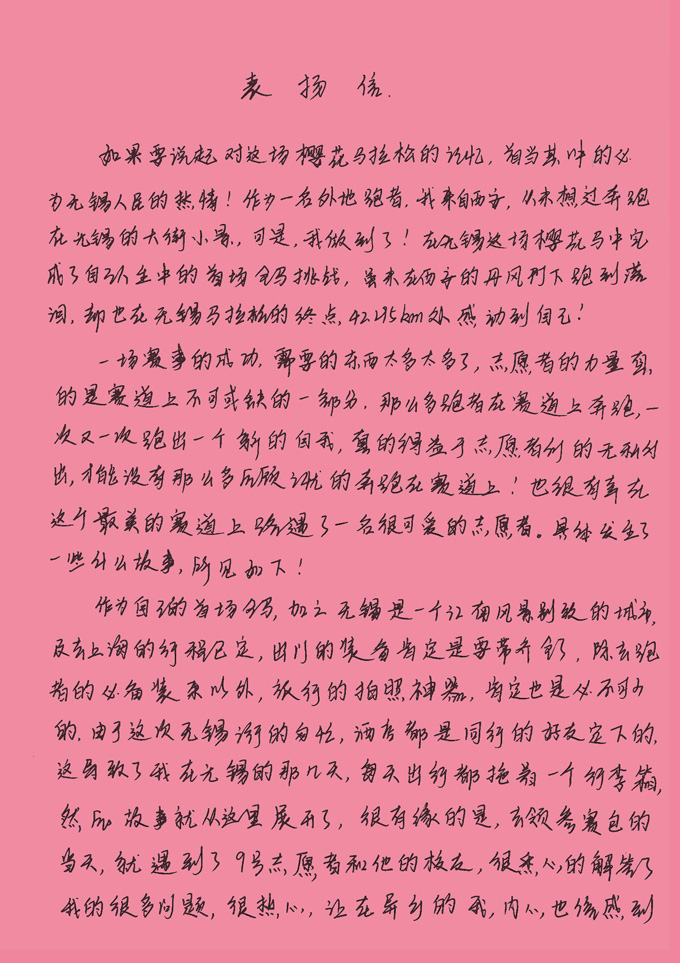 表扬信.
如果要说起对这场樱花马拉松的记忆,首当其冲的必
为无锡人民的热情!作为一名外地跑者,我来自西安,从未想过奔跑
在无锡的大街小巷,可是,我做到了!在无锡这场樱花马中完
成了自己人生中的首场全马挑战,虽未在西安的丹风列下跑到落
泪,却也在无锡马拉松的终点,42.195km处感动到自己!
一场赛事的成功,需要的东西太多太多了,志愿者的力量真
的是赛道上不可或缺的一部分,那么多跑者在赛道上奔跑,一
次又一次跑出一个新的自我,真的得益于志愿者们的无私付
出,才能没有那么多后顾之忧的奔跑在赛道上!也很有幸在
这个最美的赛道上路遇了一名很可爱的志愿者。具体发生了
一些什么故事,所见如下!
作为自己的首场全马,加之无锡是一个江南风景别致的城市,
及去上海的行程已定,出行的装备肯定是要带齐的,除去跑
者的必备装束以外,旅行的拍照神器,肯定也是必不可少
的.由于这次无锡之行的匆忙,酒店都是同行的好友定下的,
这导致了我在无锡的那几天,每天出行都拖着一个行李箱,
然后故事就从这里展开了,很有缘的是,去领参赛包的
当天,就遇到了9号志愿者和他的校友,很悉心的解答了
我的很多问题,很热心,让在异乡的我,内心也倍感到